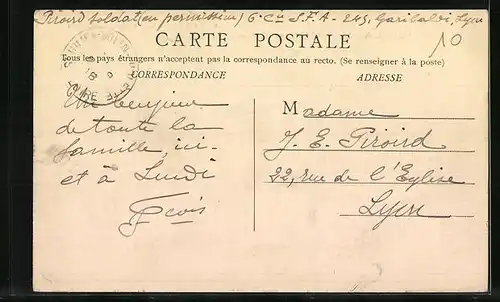 Piroird soldat (en permission) 6e Cie S.F.A - 245, Garibaldi, Lyon
CARTE POSTALE
10
Tous les pays étrangers n'acceptent pas la correspondance au recto. (Se renseigner à la poste)
CORRESPONDANCE
ADRESSE
Un bonjour
de toute la
famille, ici
et à Lundi
Madame
J. E. Piroird
22, rue de l'Eglise
Lyon